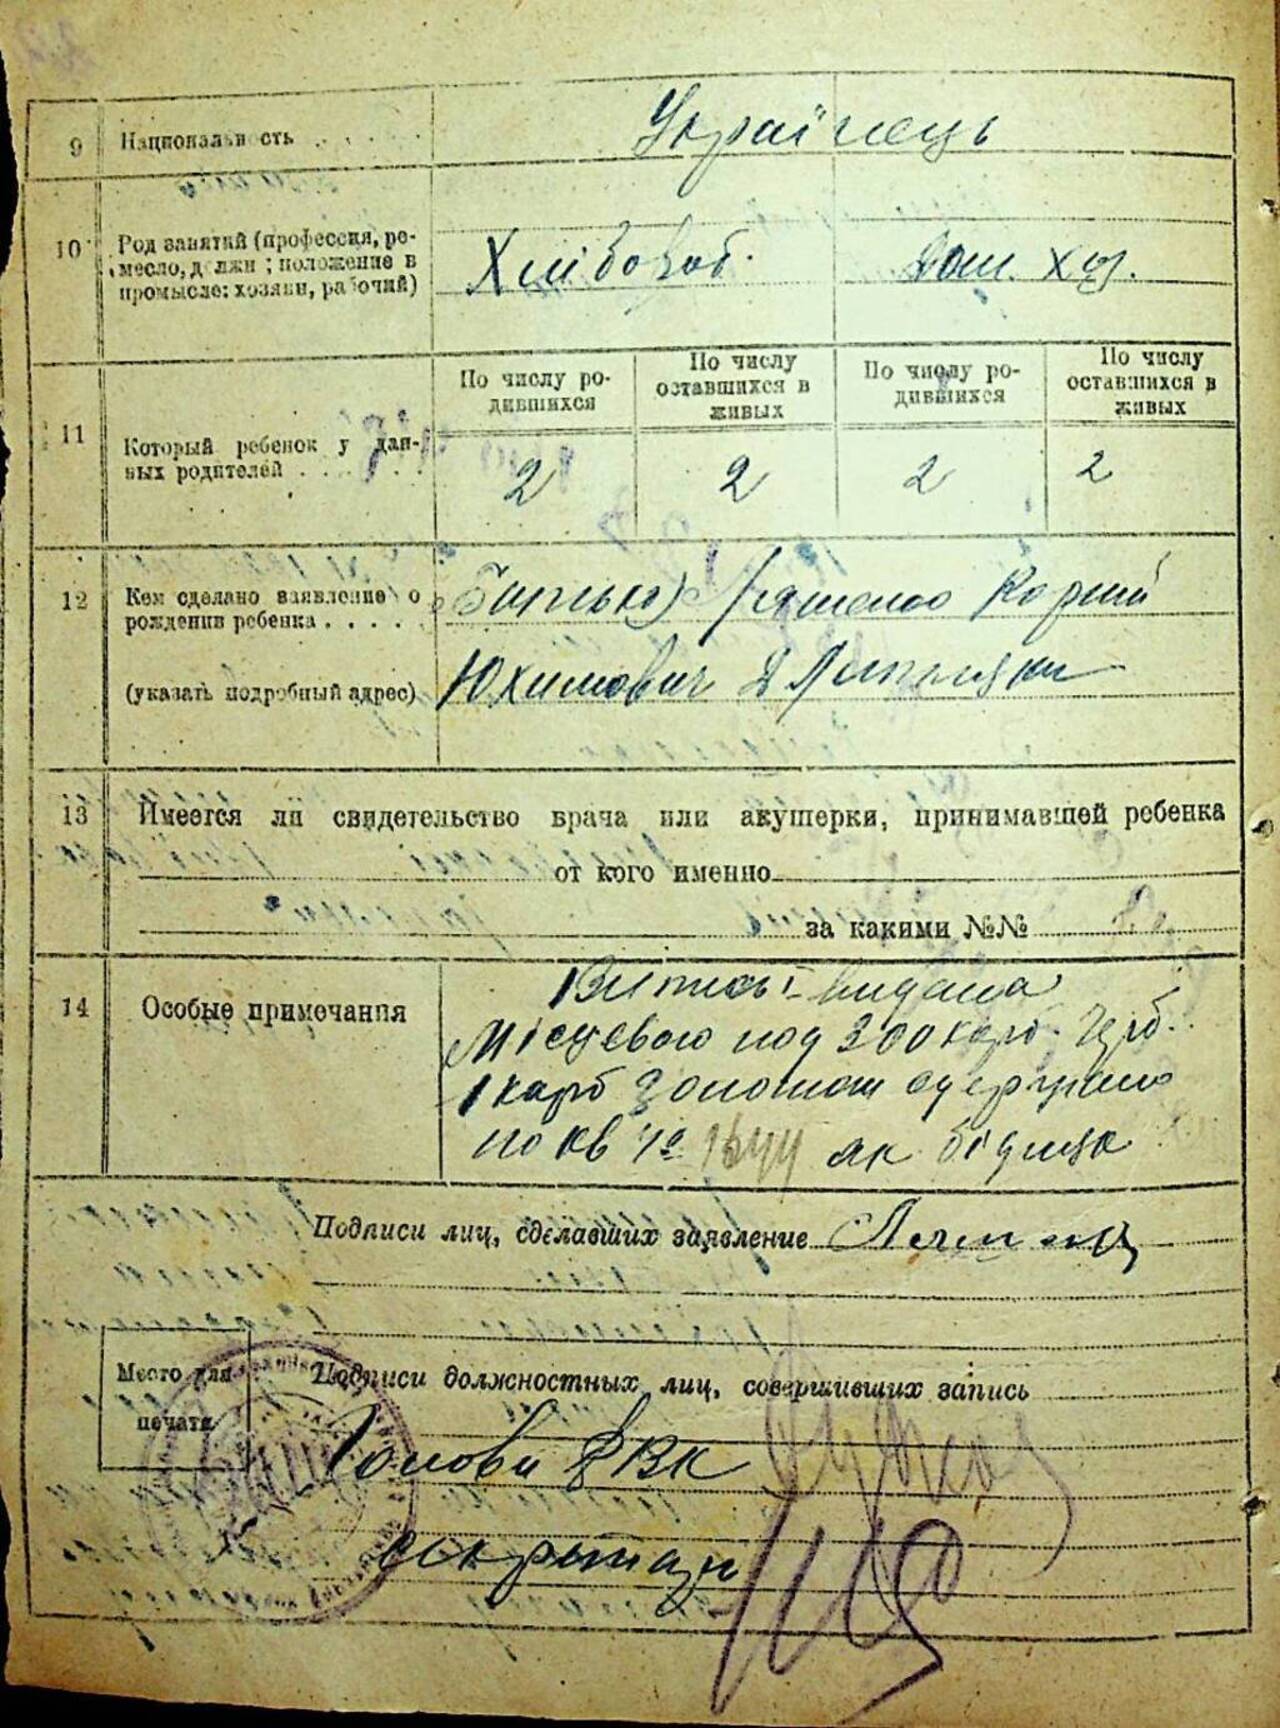 9 Национальность . . . Українець
10 Род занятий (профессия, ре-
месло, должн; положение в
промысле: хозяин, рабочий)
Хлібороб. дом. хоз.
11 Который ребенок у дан-
ных родителей . . . . .
По числу ро-
дившихся
По числу
оставшихся в
живых
По числу ро-
дившихся
По числу
оставшихся в
живых
2 2 2 2
12 Кем сделано заявление о
рождении ребенка . . . .
(указать подробный адрес)
Батько Корній
Юхимович
13 Имеется ли свидетельство врача или акушерки, принимавшей ребенка
от кого именно
за какими №№
14 Особые примечания
Випись видана
Місцевою под 300 карб.
1 карб золотом одержано
по кв № 1644 як бідняк
Подписи лиц, сделавших заявление
Место для
печати
Подписи должностных лиц, совершивших запись
Голова РВК
секретар